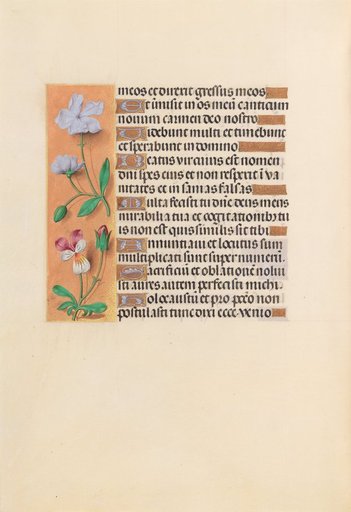 meos et direxit gressus meos
Et inmisit in os meũ canticum
novum carmen deo nostro
Videbunt multi et timebunt
et sperabunt in domino
Beatus vir cuius est nomen
dñi spes eius et non respexit ĩ va
nitates et in sanias falsas
Multa fecisti tu dñe deus meus
mirabilia tua et cogitationibꝰ tu
is non est quis similis sit tibi
Annuntiavi et locutus sum
multiplicati sunt super numerũ
Sacrificiũ et oblationẽ nolui
sti aures autem perfecisti michi
Holocaustũ et pro pctõ non
postulasti tunc dixi ecce venio